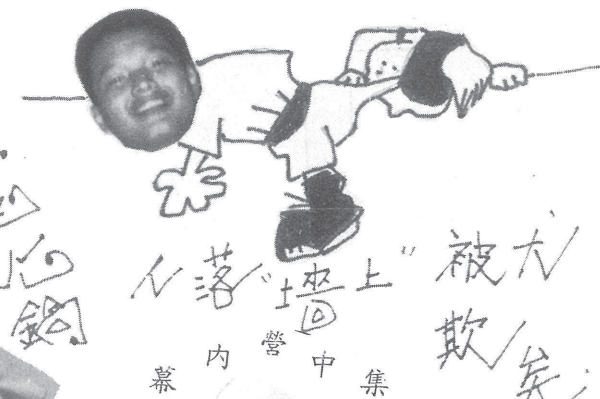 心
鍋
人落“墻上”被犬
欺矣
集中營內幕